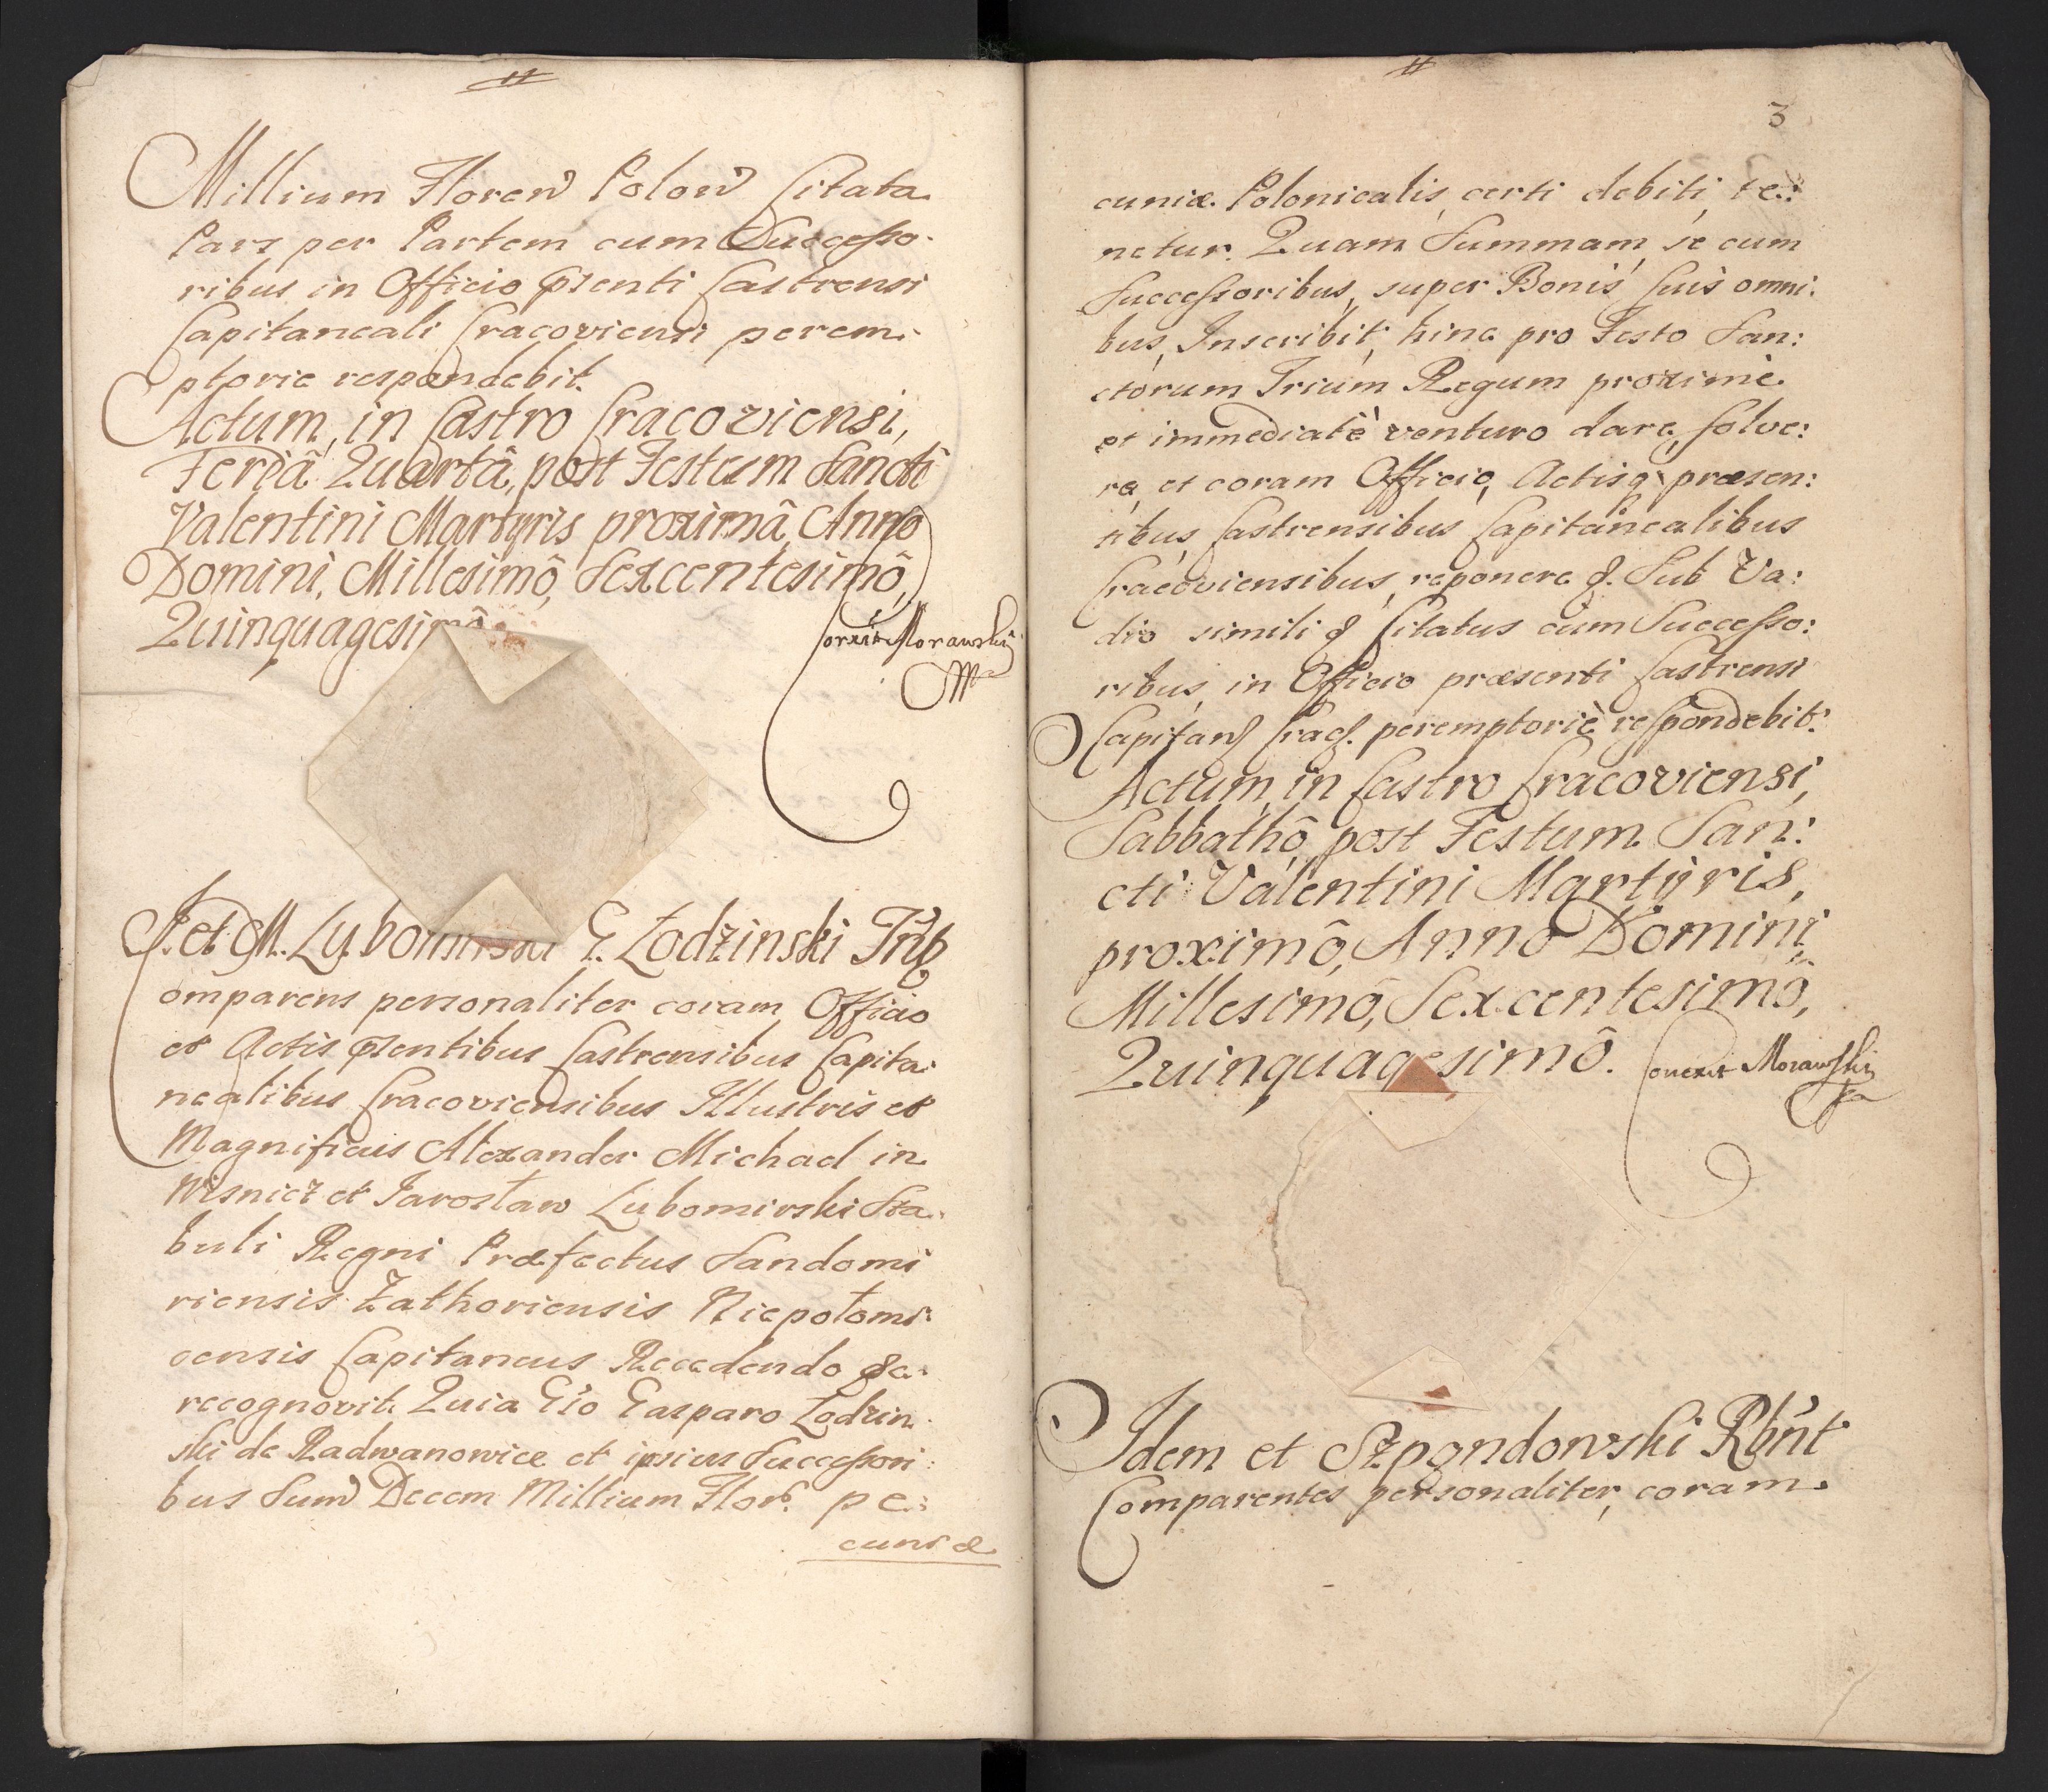 Millium Floren Polon Citata
Pars per Partem cum Successo-
ribus in Officio pñsenti Castrensi
Capitaneali Cracoviensi perem-
ptorie respondebit.
Actum, in Castro Cracoviensi,
Feriâ Quartâ, post Festum Sancti
Valentini Martyris proximâ, Anno
Domini, Millesimô, Sexcentesimô,
Quinquagesimô
Morawski
I. et M. Lubomirski G. Łodzinski
omparens personaliter coram Officio
et Actis pñsentibus Castrensibus Capita-
nealibus Cracoviensibus Illustris et
Magnificus Alexander Michael in
Wisnicz et Jarosław Lubomirski Sta-
buli Regni Præfectus Sandomi
riensis Zathoriensis Niepołomi-
censis Capitaneus Recedendo &c.
recognovit Quia Gso Gasparo Łodzin
ski de Radwanowice et ipsius Successori:
bus Sum Decem Millium Flor. pe:
cuniæ
3
cuniæ Polonicalis, certi debiti, te:
netur. Quam Summam, se cum
Successoribus, super Bonis Suis omni:
bus, Inscribit, hinc pro Festo San:
ctorum Trium Regum proximè
et immediatè venturo dare, solve:
re, et coram Officio, Actisq præsen:
tibus, Castrensibus Capitanealibus
Cracoviensibus, reponere &. Sub Va:
dio simili & Citatus cum Successo:
ribus, in Officio præsenti Castrensi
Capitan Crac. peremptoriè respondebit.
Actum, in Castro Cracoviensi,
Sabbathô, post Festum San:
cti Valentini Martyris,
proximô, Anno Domini
Millesimô, Sexcentesimô,
Quinquagesimô.
Morawski
Idem et Szpondowski Rbnt
Comparentes personaliter, coram